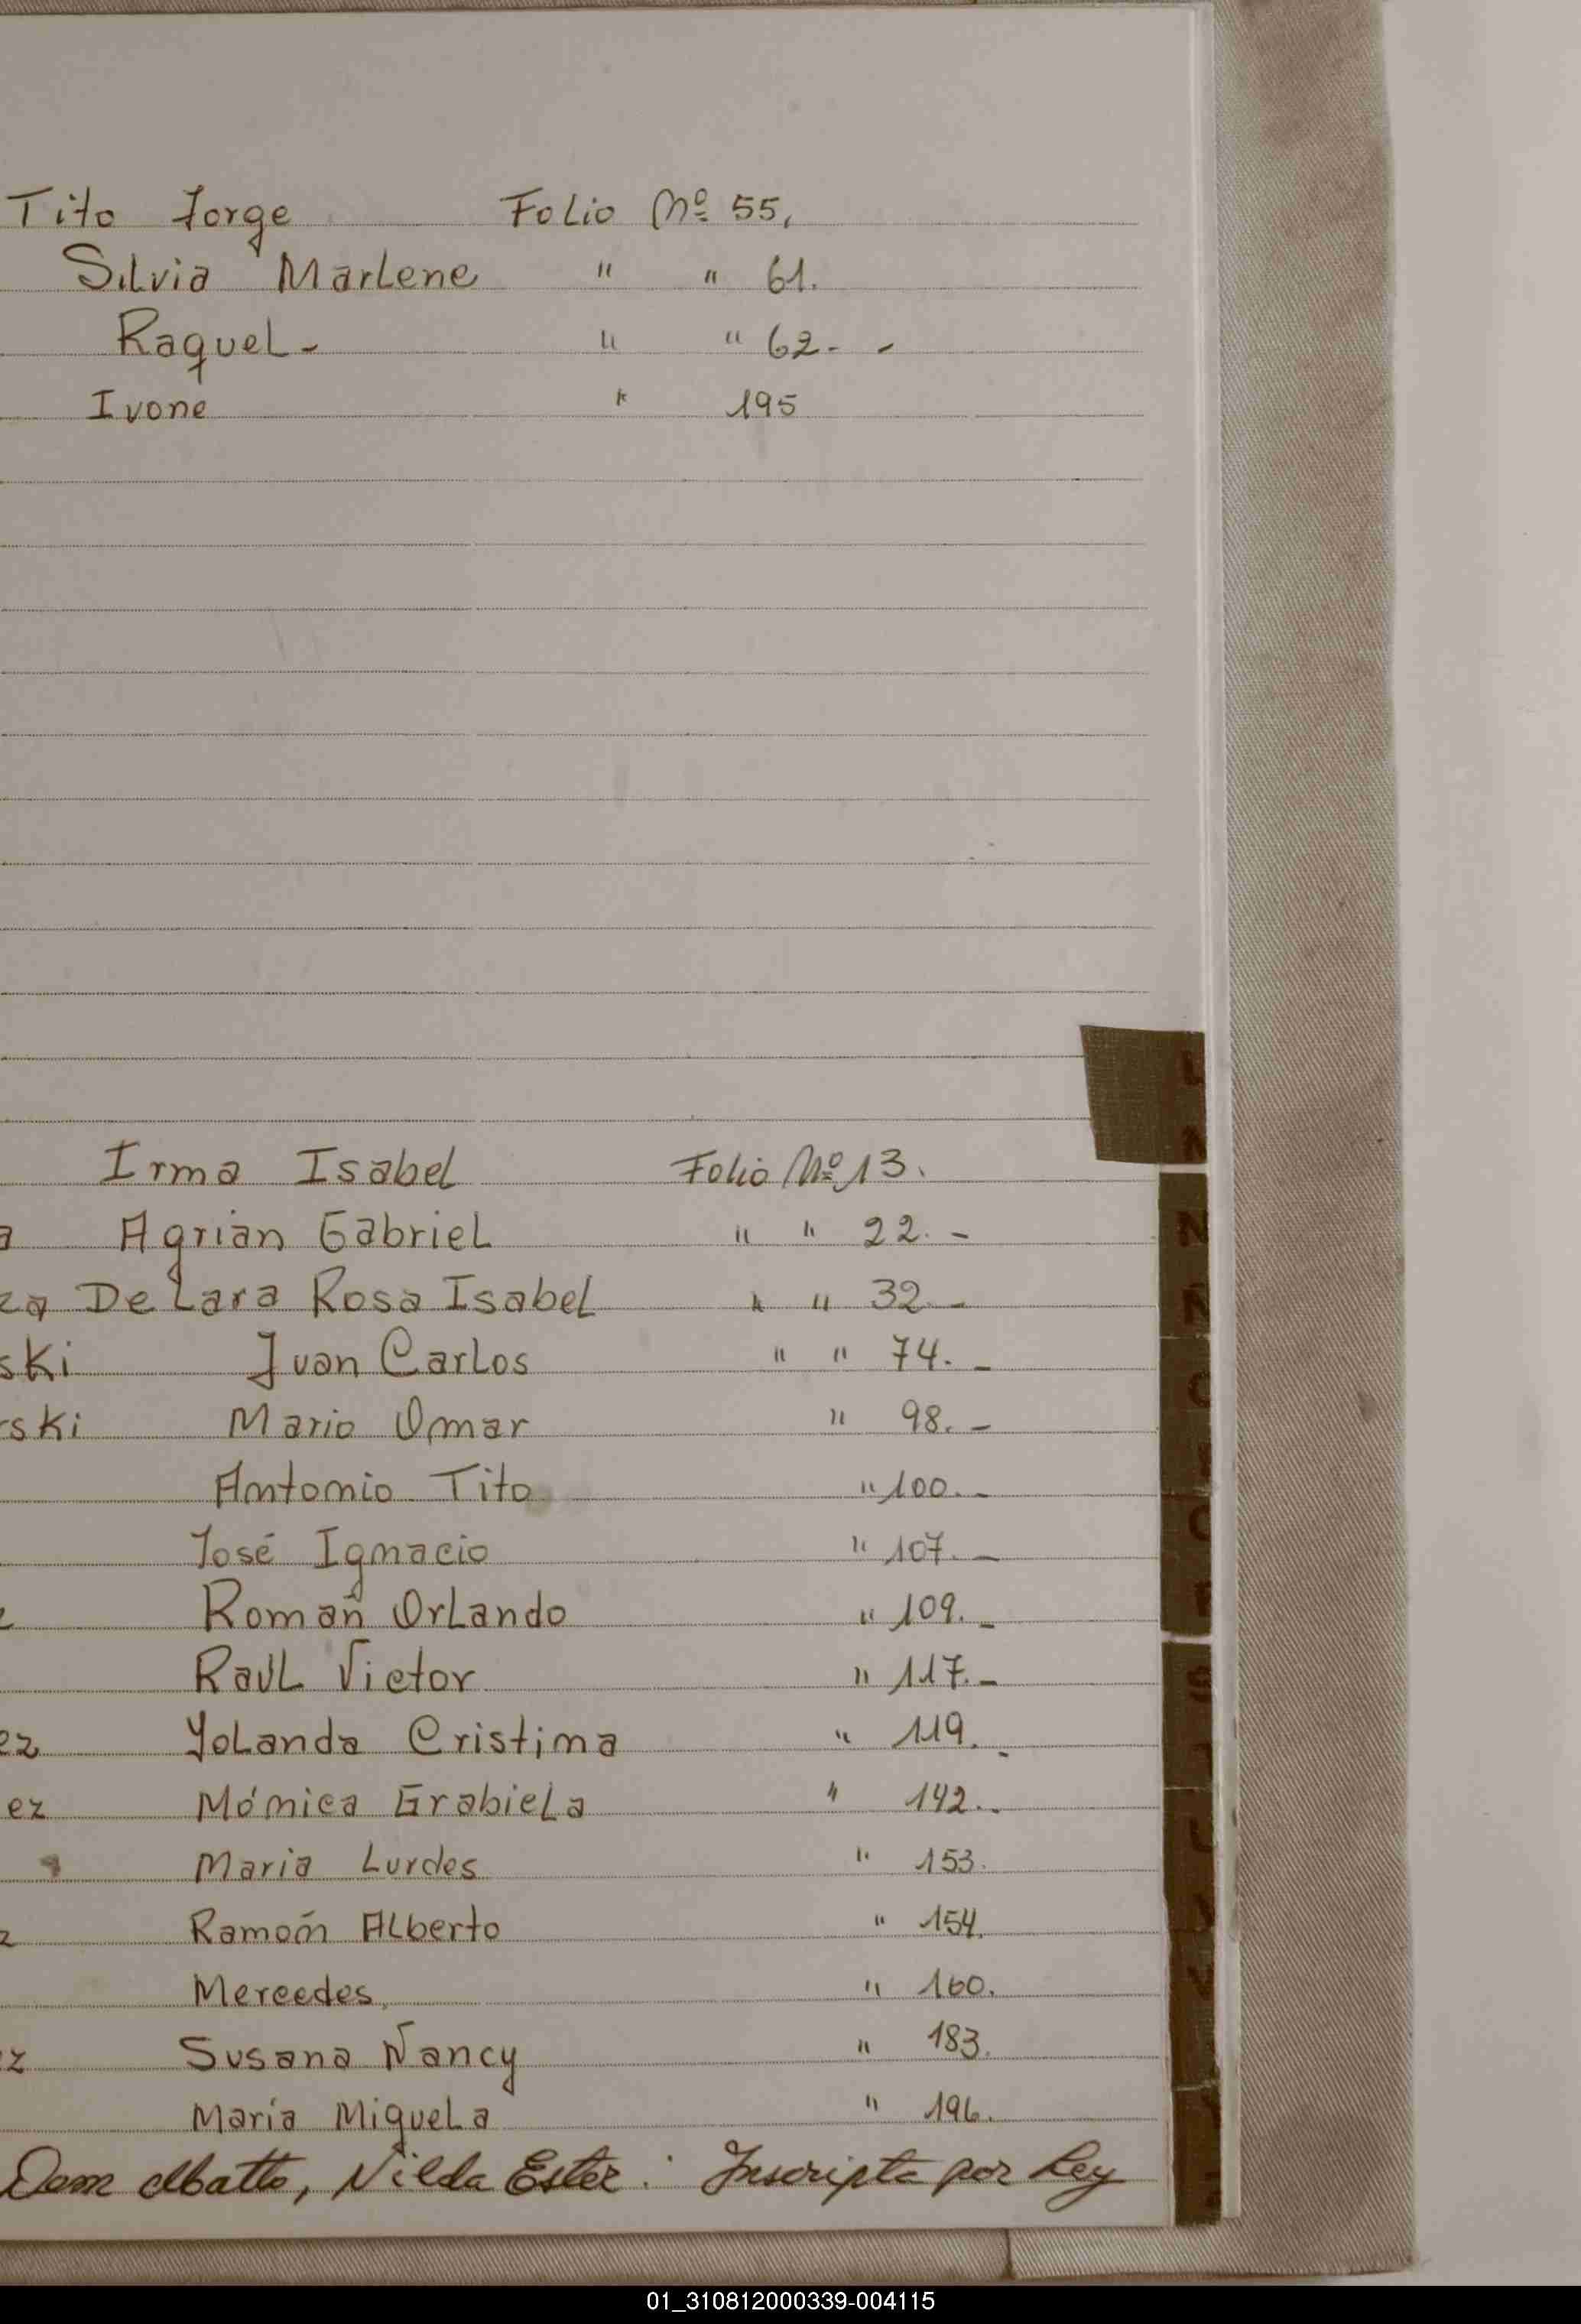 Tito Jorge Folio Nº 55.
Silvia Marlene " " 61.
Raquel- " " 62.- -
Ivone " 195
Irma Isabel Folio Nº 13.
a Agrian Gabriel " " 22.-
za De Lara Rosa Isabel " " 32.-
ski Juan Carlos " " 74.-
rski Mario Omar " 98.-
Antonio Tito " 100.-
José Ignacio " 107.-
Román Orlando " 109.-
Raúl Victor " 117.-
ez Yolanda Cristina " 119.-
ez Mónica Grabiela " 142.-
Maria Lurdes " 153.
z Ramón Alberto " 154.
Mercedes. " 160.
z Susana Nancy " 183.
María Miguela " 196.
Nilda Ester: Inscripta por Ley
01_310812000339-004115